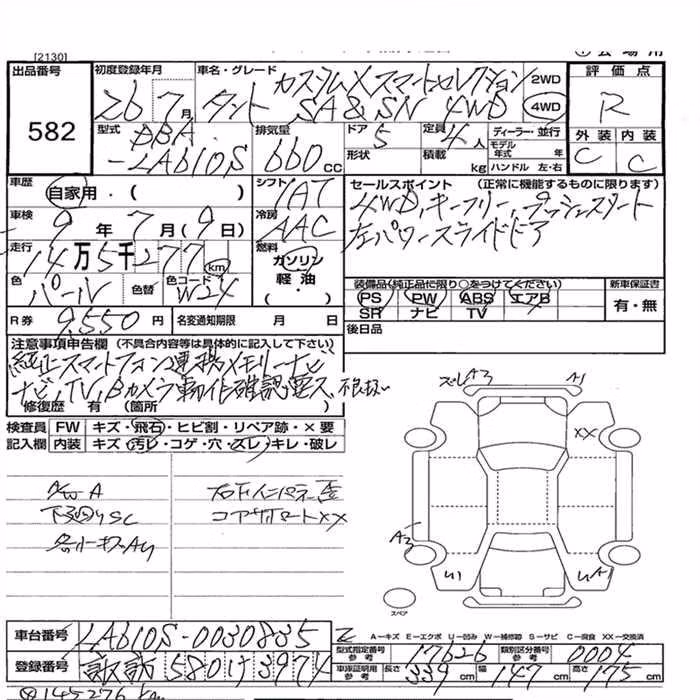 [2130]
出品番号
582
初度登録年月
26 7月
車名・グレード
カスタムX スマートセレクション
タント SA & SN 4WD
2WD
4WD
評価点
R
外装 内装
C C
型式
DBA
-LA610S
排気量
660 cc
ドア
5
形状
定員
4人
積載
kg
ディーラー・並行
モデル年式 年
ハンドル 左・右
車歴
自家用・( )
シフト
IAT
車検
9年 7月 (9日)
冷房
AAC
走行
14万5千277 km
燃料
ガソリン
軽油
・( )
色
パール
色替
色コード
W24
R券 9,550円
名変通知期限 月 日
セールスポイント (正常に機能するものに限ります)
4WD、キーフリー、プッシュスタート
左パワースライドドア
装備品(純正品に限り○をつけてください)
PS PW ABS エアB
SR ナビ TV
新車保証書
有・無
後日品
注意事項申告欄 (不具合内容等は具体的に記入して下さい)
純正スマートフォン連携メモリーナビ
ナビ,TV,Bカメラ動作確認要ス 不良扱い
修復歴 有 (箇所 )
検査員記入欄
FW キズ・飛石・ヒビ割・リペア跡・×要
内装 キズ・汚レ・コゲ・穴・スレ・キレ・破レ
下廻りSC
コアサポートXX
A3
A1
XX
A3
U1
UA1
スペア
A−キズ E−エクボ U−凹み W−補修跡 S−サビ C−腐食 XX−交換済
車台番号
LA610S-0030835
登録番号
諏訪 580 け 3974
型式指定番号 参考
17626
類別区分番号 参考
0004
車庫証明用 参考
長さ 339cm
幅 147cm
高さ 175cm
145276 km